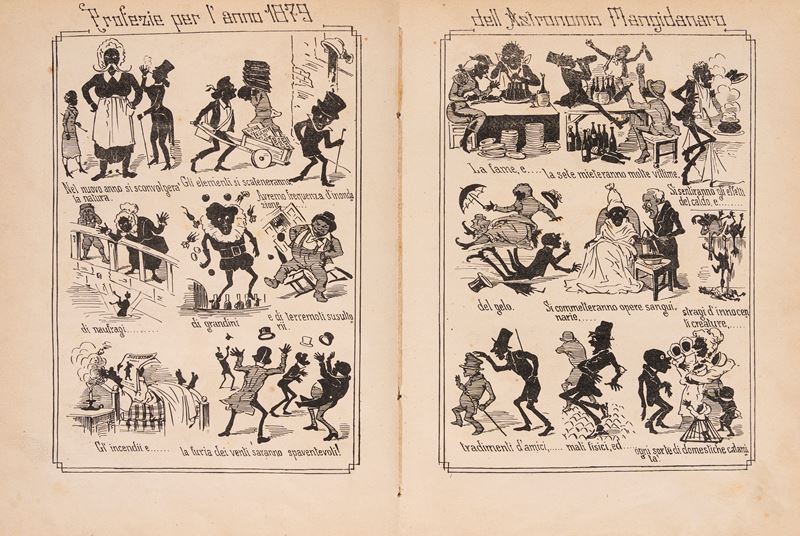 Profezie per l'anno 1879
dell'Astronomo Mangidanaro
Nel nuovo anno si sconvolgerá
la natura.
Gli elementi si scateneranno.
Avremo frequenza d'inonda
zione,
di naufragi.........
di grandini
e di terremoti susulto
rii.
Gl'incendii e......
la furia dei venti saranno spaventevoli!
La fame, e.....
la sete mieteranno molte vittime.
Si sentiranno gli effetti
del caldo, e........
del gelo.
Si commetteranno opere sangui,
narie,.....
stragi d'innocen
ti creature,....
tradimenti d'amici,.....
mali fisici, ed....
ogni sorte di domestiche calami
tà.